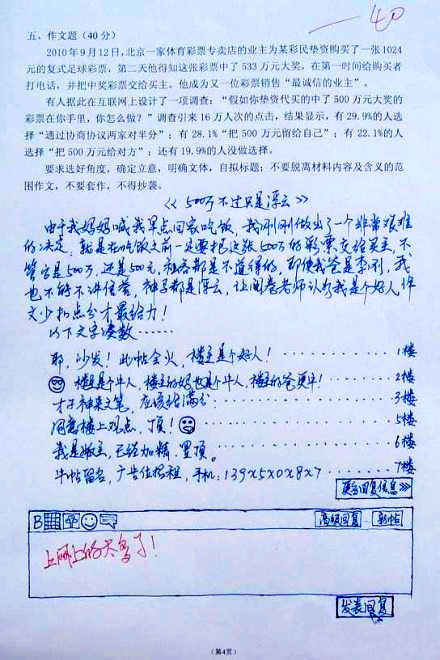 —40
五、作文题（40 分）
2010 年 9 月 12 日，北京一家体育彩票专卖店的业主为某彩民垫资购买了一张 1024
元的复式足球彩票，第二天他得知这张彩票中了 533 万元大奖，在第一时间给购买者
打电话，并把中奖彩票交给买主。他成为又一位彩票销售“最诚信的业主”。
有人据此在互联网上设计了一项调查：“假如你垫资代买的中了 500 万元大奖的
彩票在你手里，你怎么做？”调查引来 16 万人次的点击，结果显示，有 29.9%的人选
择“通过协商协议两家对半分”；有 28.1%“把 500 万元留给自己”；有 22.1%的人
选择“把 500 万元给对方”；还有 19.9%的人没做选择。
要求选好角度，确定立意，明确文体，自拟标题；不要脱离材料内容及含义的范
围作文，不要套作，不得抄袭。
《500万不过只是浮云》
由于我妈妈喊我早点回家吃饭，我刚刚做出了一个非常艰难
的决定，就是在吃饭之前一定要把这张500万的彩票交给买主，不
管它是500万，还是500元，私吞都是不道德的，即使我爸是李刚，我
也不能不讲信誉，神马都是浮云，让阅卷老师认为我是个好人，作
文少扣点分才最给力！
以下文字凑数……
耶，沙发！此帖会火，楼主是个好人！………………1楼
楼主是个牛人，楼主的妈也是个牛人，楼主的爸更牛！………2楼
才子神来之笔，应该给满分………………3楼
同意楼上观点，顶！………………5楼
我是版主，已经加精，置顶。………………6楼
牛帖留名，广告位招租，手机：139x5x0x8x7………7楼
更多回复信息>>>
B
高级回复
新帖
上网上的太多了！
发表回复
（第4页）